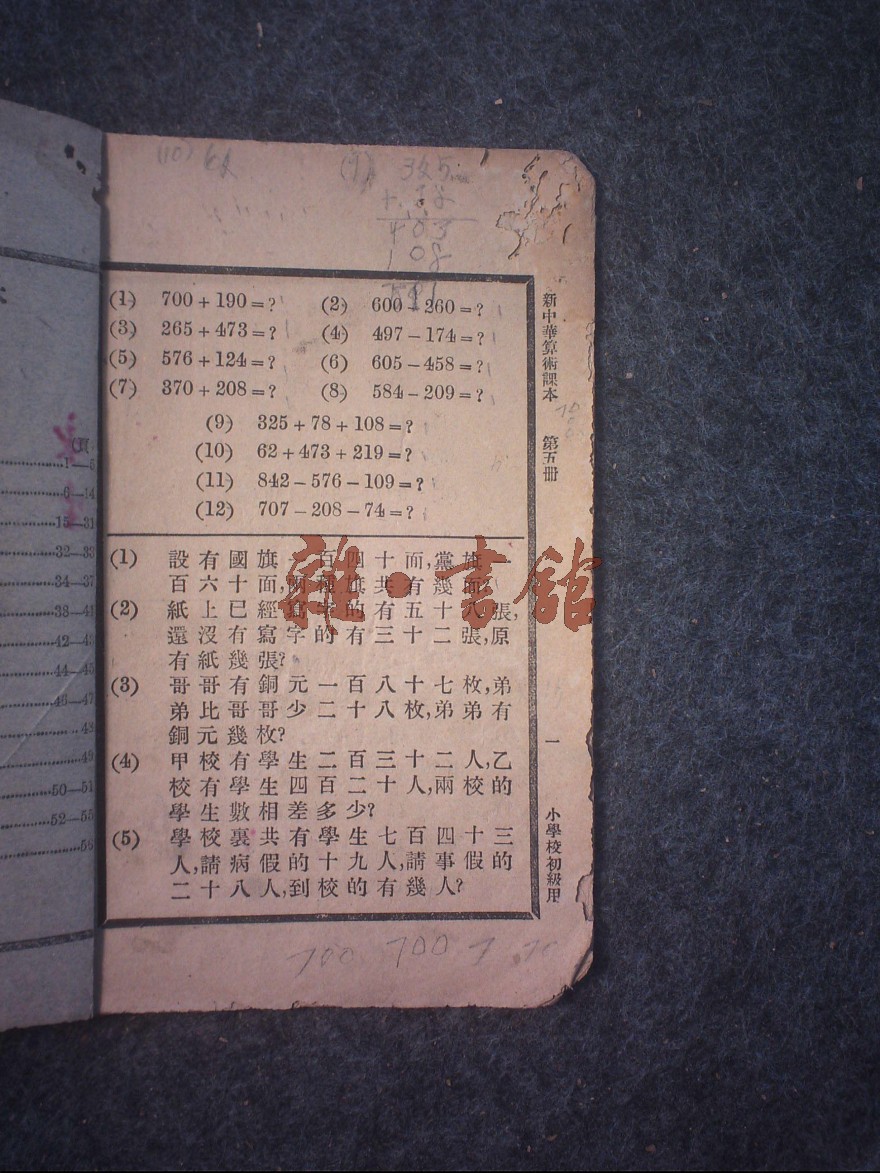 (1) 700+190=? (2) 600-260=?
(3) 265+473=? (4) 497-174=?
(5) 576+124=? (6) 605-458=?
(7) 370+208=? (8) 584-209=?
(9) 325+78+108=?
(10) 62+473+219=?
(11) 842-576-109=?
(12) 707-208-74=?
(1) 設有國旗一百四十面,黨旗一
百六十面,兩種旗共有幾面?
(2) 紙上已經寫字的有五十八張,
還沒有寫字的有三十二張,原
有紙幾張?
(3) 哥哥有銅元一百八十七枚,弟
弟比哥哥少二十八枚,弟弟有
銅元幾枚?
(4) 甲校有學生二百三十二人,乙
校有學生四百二十人,兩校的
學生數相差多少?
(5) 學校裏共有學生七百四十三
人,請病假的十九人,請事假的
二十八人,到校的有幾人?
新中華算術課本 第五冊
一
小學校初級用
雜·書館
700 700 7
403
108
1—5
6—14
15—31
32—33
34—37
38—41
42—43
44—45
46—47
48
49
50—51
52—55
56